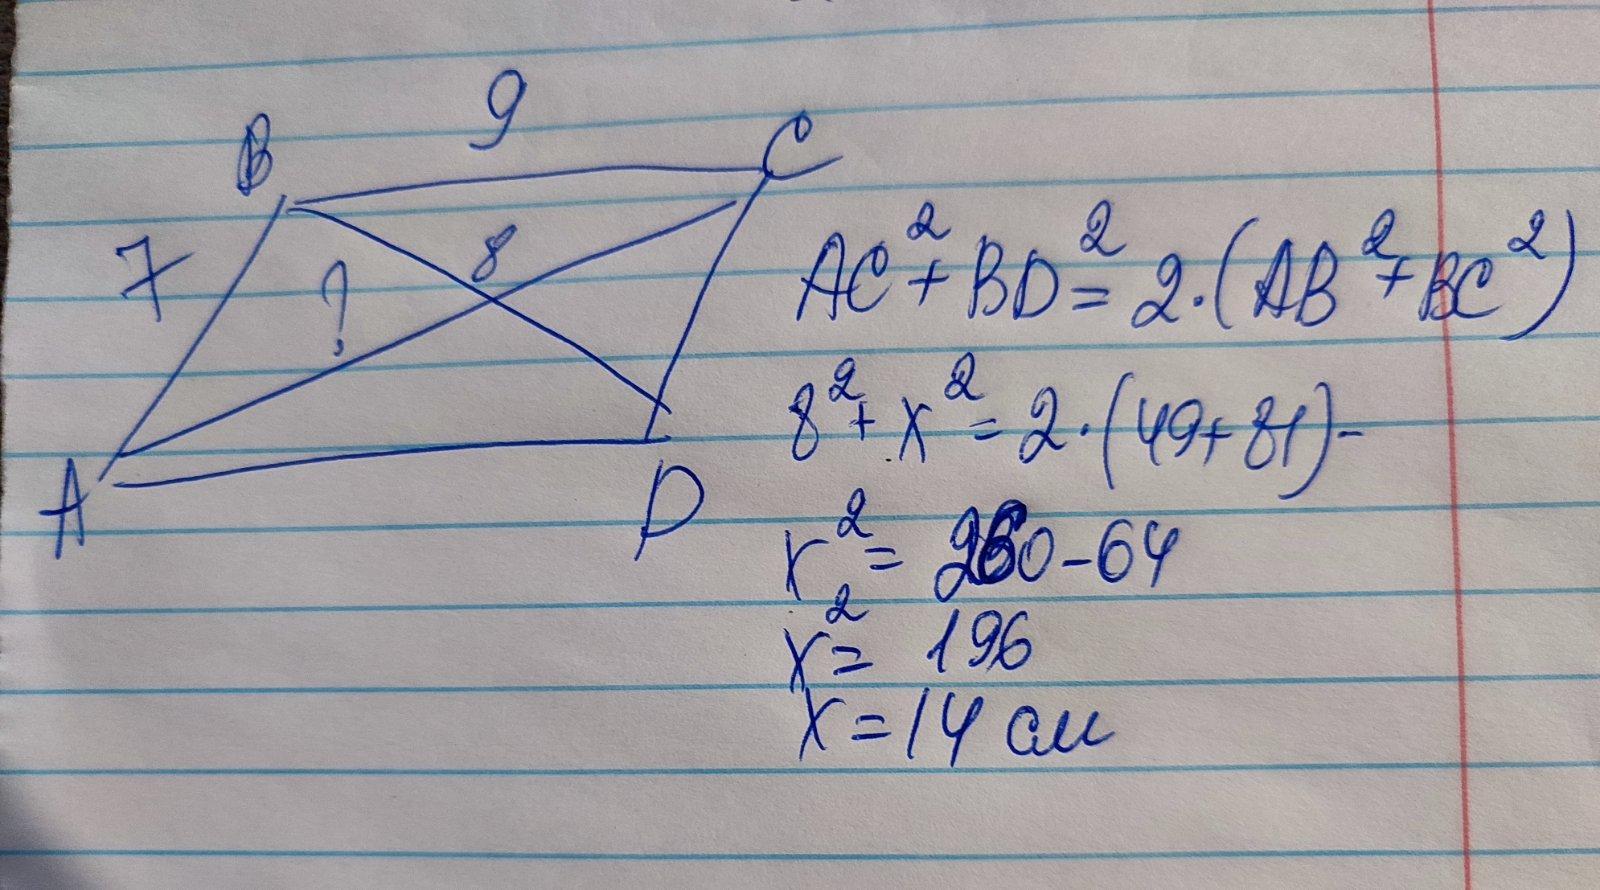 9
B
C
7
8
?
A
D
AC²+BD²=2·(AB²+BC²)
8²+x²=2·(49+81)-
x²=260-64
x²=196
x=14 см